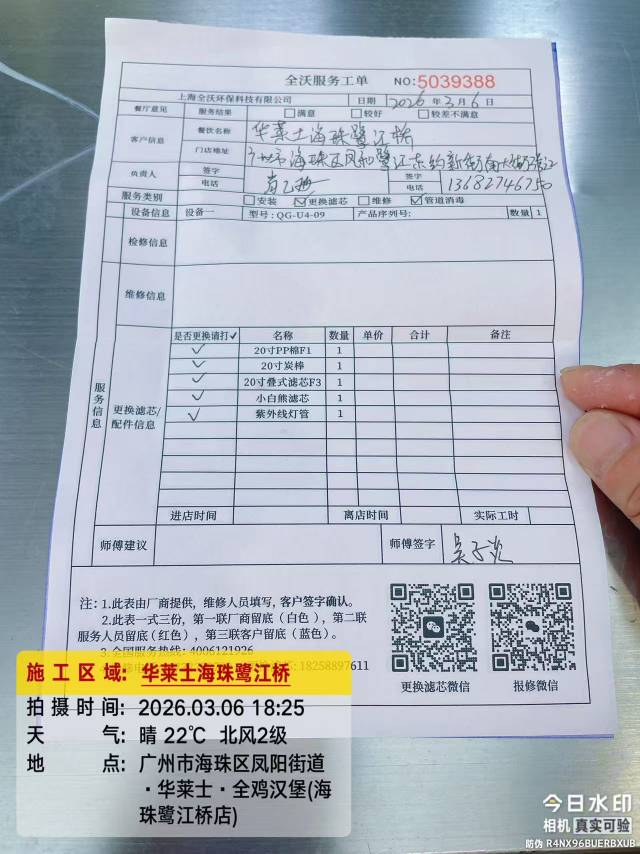 全沃服务工单 NO:5039388
上海全沃环保科技有限公司 日期 2026年3月6日
餐厅意见 服务结果 满意 较好 较差不满意
客户信息 餐饮名称 华莱士海珠鹭江桥
门店地址 广州市海珠区凤和鹭江东约新街南
负责人 签字 签字
电话 电话 13682746750
服务类别 安装 ✓更换滤芯 维修 ✓管道消毒
设备信息 设备一 型号:QG-U4-09 产品序列号: 数量 1
检修信息
维修信息
服务信息
更换滤芯/配件信息
是否更换请打✓ 名称 数量 单价 合计 备注
✓ 20寸PP棉F1 1
✓ 20寸炭棒 1
✓ 20寸叠式滤芯F3 1
✓ 小白熊滤芯 1
✓ 紫外线灯管 1
进店时间 离店时间 实际工时
师傅建议 师傅签字
注:1.此表由厂商提供,维修人员填写,客户签字确认。
2.此表一式三份,第一联厂商留底(白色),第二联
服务人员留底(红色),第三联客户留底(蓝色)。
3.全国服务热线:4006121926
18258897611
更换滤芯微信 报修微信
施工区域: 华莱士海珠鹭江桥
拍摄时间: 2026.03.06 18:25
天气: 晴 22℃ 北风2级
地点: 广州市海珠区凤阳街道
·华莱士·全鸡汉堡(海
珠鹭江桥店)
今日水印
相机 真实可验
防伪 R4NX96BUERBXUB